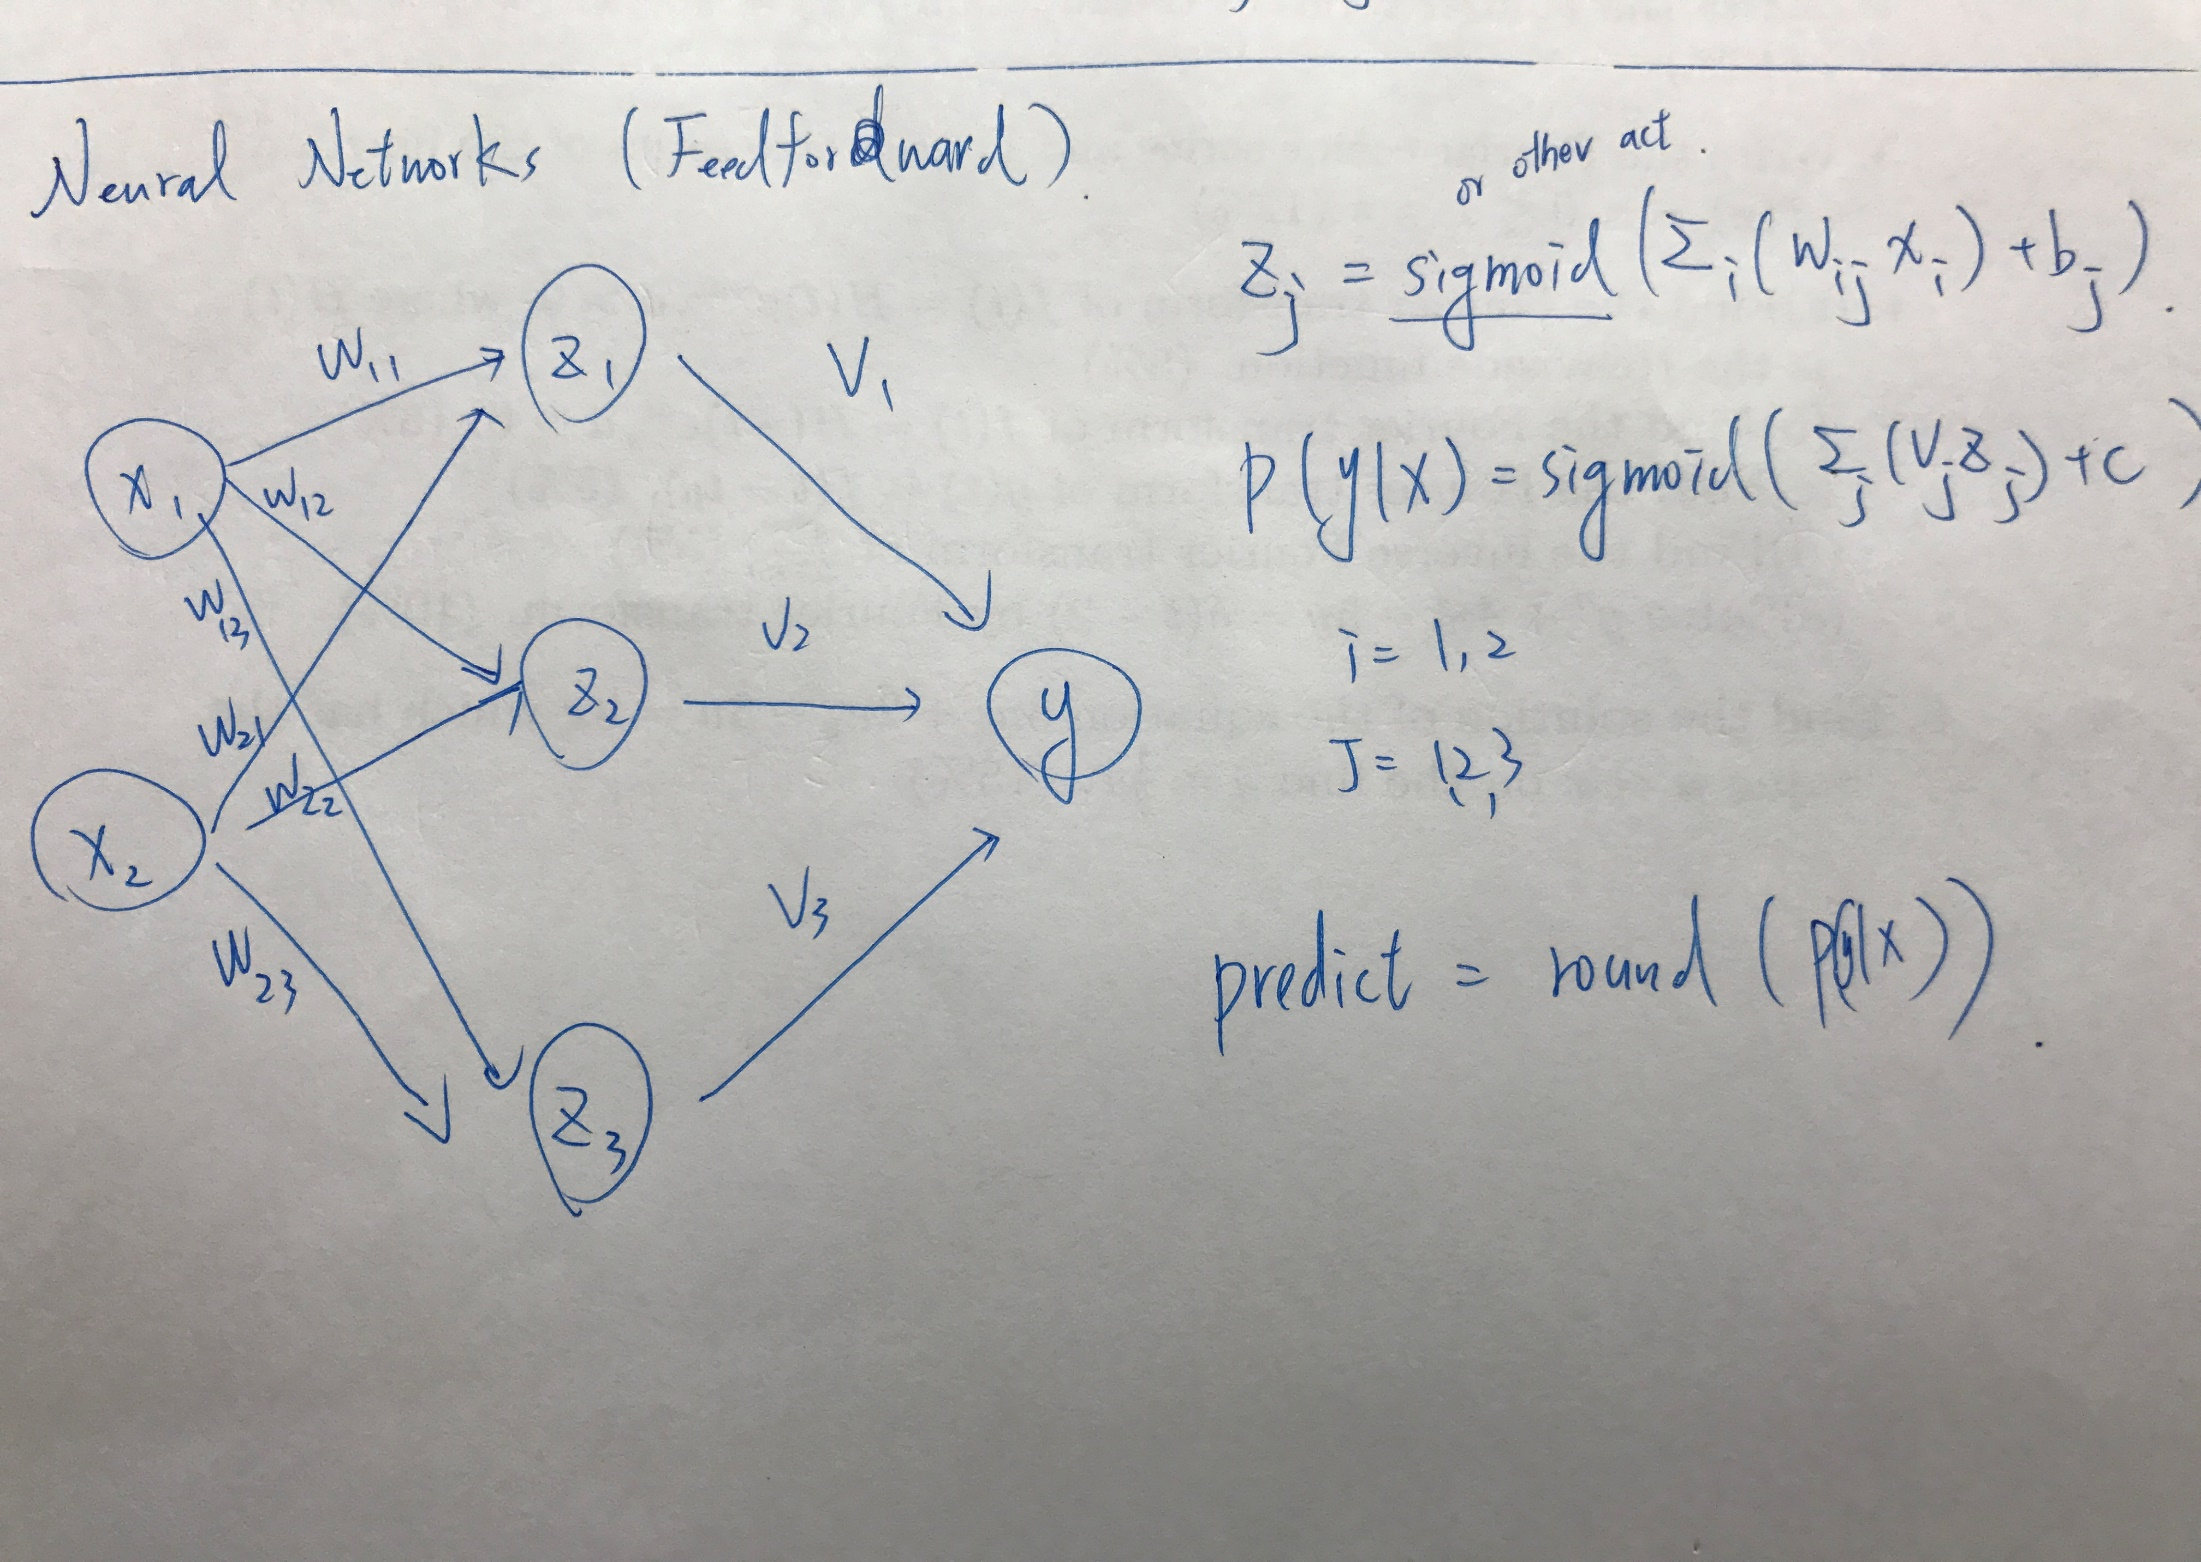 Neural Networks (Feedfordward).
or other act.
Zj = sigmoid (Σi (Wij Xi) + bj).
p(y|x) = sigmoid (Σj (Vj Zj) + c)
i = 1, 2
J = 1, 2, 3
predict = round (p(y|x)).
Z1
W11
V1
X1
W12
W13
V2
Z2
y
W21
W22
X2
V3
W23
Z3